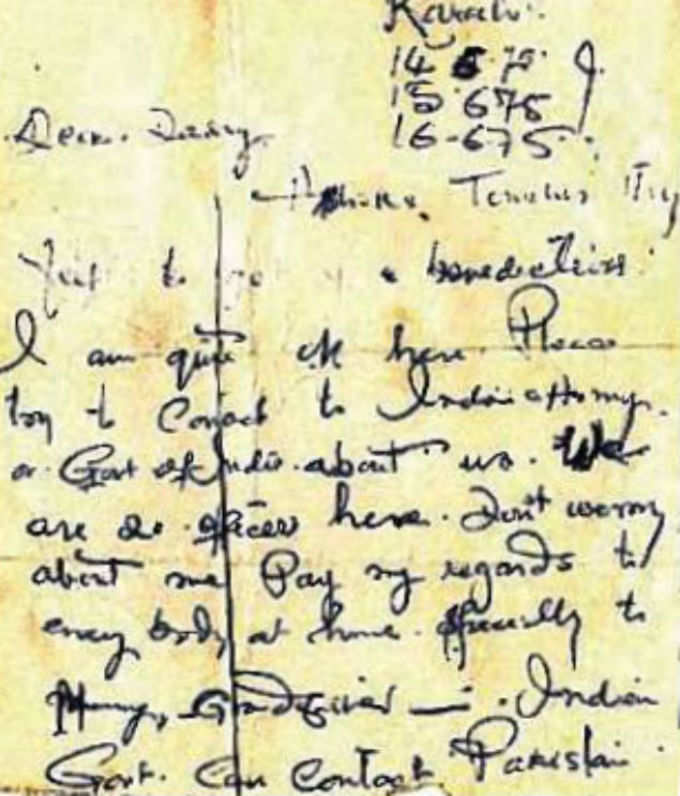 Karachi
14 6 75
15 6 75
16-6-75
Dear. Daddy
touch
to you benedictions
I am quite ok here. Please
try to Contact to Indian Army.
or Govt of India. about us. We
are 20 officers here. Don't worry
about me Pay my regards to
every body at home. specially to
Mummy, Grandfather — . Indian
Govt. Can Contact Pakistan